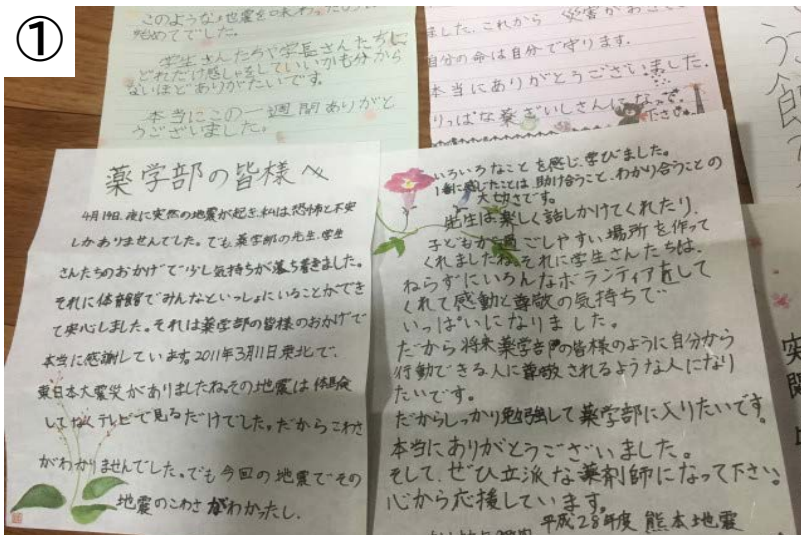 ①
始めてでした。
学生さんたちや学長さんたちに
どれだけ感しゃをしていいかも分から
ないほどありがたいです。
本当にこの一週間ありがと
うございました。
ました。これから 災害が
自分の命は自分で守ります。
本当にありがとうございました。
りっぱな薬ざいしさんになって
下さい。
薬学部の皆様へ
4月14日、夜に突然の地震が起き、私は恐怖と不安
しかありませんでした。でも、薬学部の先生、学生
さんたちのおかげで少し気持ちが落ち着きました。
それに体育館でみんなといっしょにいることができ
て安心しました。それは薬学部の皆様のおかげで
本当に感謝しています。2011年3月11日東北で、
東日本大震災がありましたね。その地震は体験
してなくテレビで見るだけでした。だからこわさ
がわかりませんでした。でも今回の地震でその
地震のこわさがわかったし、
いろいろなことを感じ、学びました。
1番に感じたことは、助け合うこと、わかり合うことの
大切さです。
先生は楽しく話しかけてくれたり、
子どもから過ごしやすい場所を作って
くれましたね。それに学生さんたちは、
ねらずにいろんなボランティア
くれて感動と尊敬の気持ちで
いっぱいになりました。
だから将来薬学部の皆様のように自分から
行動できる人に尊敬されるような人になり
たいです。
だからしっかり勉強して薬学部に入りたいです。
本当にありがとうございました。
そして、ぜひ立派な薬剤師になって下さい。
心から応援しています。
平成28年度 熊本地震